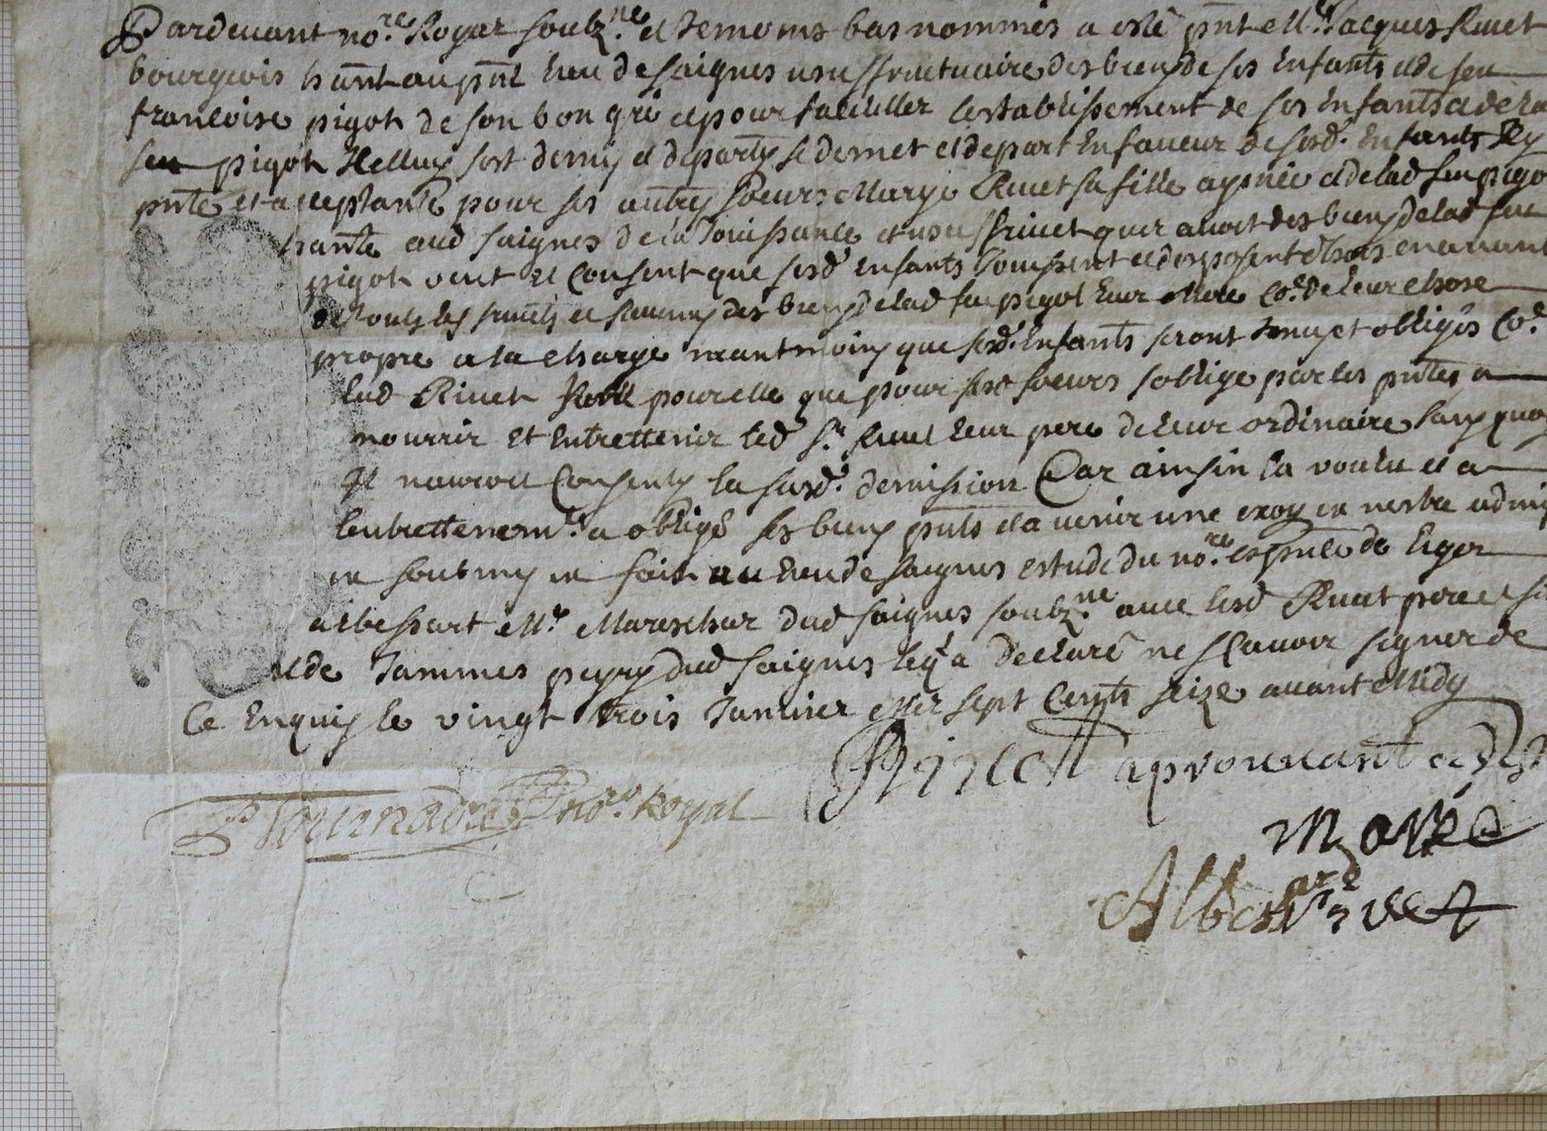 Pardevant no.re Royal soubz.ne et temoins bas nommés a esté pnt Mr. Jacques Rivet
bourgeois hant au pnt lieu de saignes usuffructuaire des biens de ses enfants et de feu
francoise pigot de son bon gré et pour faciliter lestablissement de ses enfants et de la
feu pigot Icelluy sest demis et departy se demet et depart en faveur de sesd. enfants Icy
pnte et acceptante pour ses autres soeurs Marye Rivet sa fille aynée et de lad feu pigo
hante aud saignes de la Jouissance et usuffruict quil avoit des biens de lad feue
pigot veut et consent que sesd enfants Jouissent et disposent dhors en avant
de touts les fruits et revenus des biens de lad feu pigot leur Mere Co.e de leur chose
propre a la charge neantmoins que sesd. enfants seront tenus et obligés Co.e
lad Rivet pour elle que pour ses soeurs soblige par les pntes a
nourrir et entrettenir led Sr Rivet leur pere de leur ordinaire sans quoy
Il nauroit consenty la susd. demission Car ainsin la voulu et a
lentrettenem.t a obligé ses biens pnts et a venir une exoy en nestre admis
ce soubmis ce fait au lieu de saignes estude du no.re es pnce de liger
albessart Mr. Mareschar dud saignes soubz.ne avec lesd Rivet pere et fi
et de Jammes peyry dud saignes leql a declaré ne scavoir signer de
ce enquis le vingt trois Janvier Mil sept cents seize avant Midy
Rivet aprouvant
no.re Royal
marie
Albessard rivet